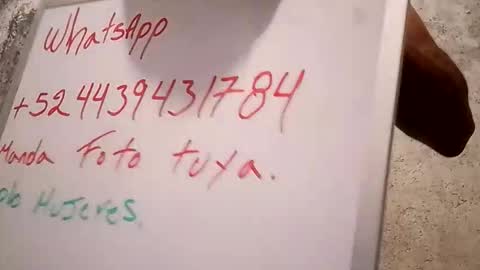 WhatsApp
+524439431784
Manda Foto tuya.
Mujeres.